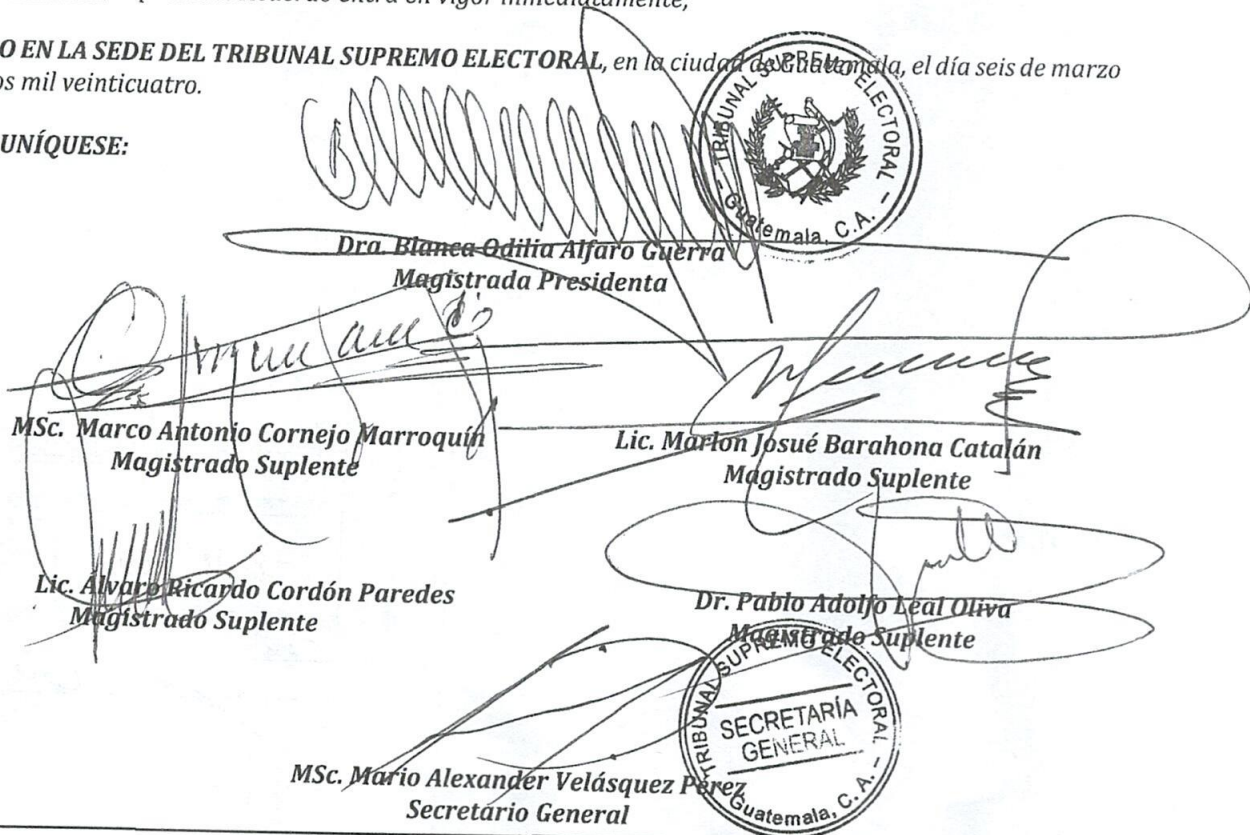 entra en vigor inmediatamente,
O EN LA SEDE DEL TRIBUNAL SUPREMO ELECTORAL, en la ciudad de Guatemala, el día seis de marzo
os mil veinticuatro.
UNÍQUESE:
TRIBUNAL SUPREMO ELECTORAL
Guatemala, C.A.
Dra. Blanca Odilia Alfaro Guerra
Magistrada Presidenta
MSc. Marco Antonio Cornejo Marroquín
Magistrado Suplente
Lic. Marlon Josué Barahona Catalán
Magistrado Suplente
Lic. Álvaro Ricardo Cordón Paredes
Magistrado Suplente
Dr. Pablo Adolfo Leal Oliva
Magistrado Suplente
TRIBUNAL SUPREMO ELECTORAL
SECRETARÍA
GENERAL
Guatemala, C. A.
MSc. Mario Alexander Velásquez Pérez
Secretario General